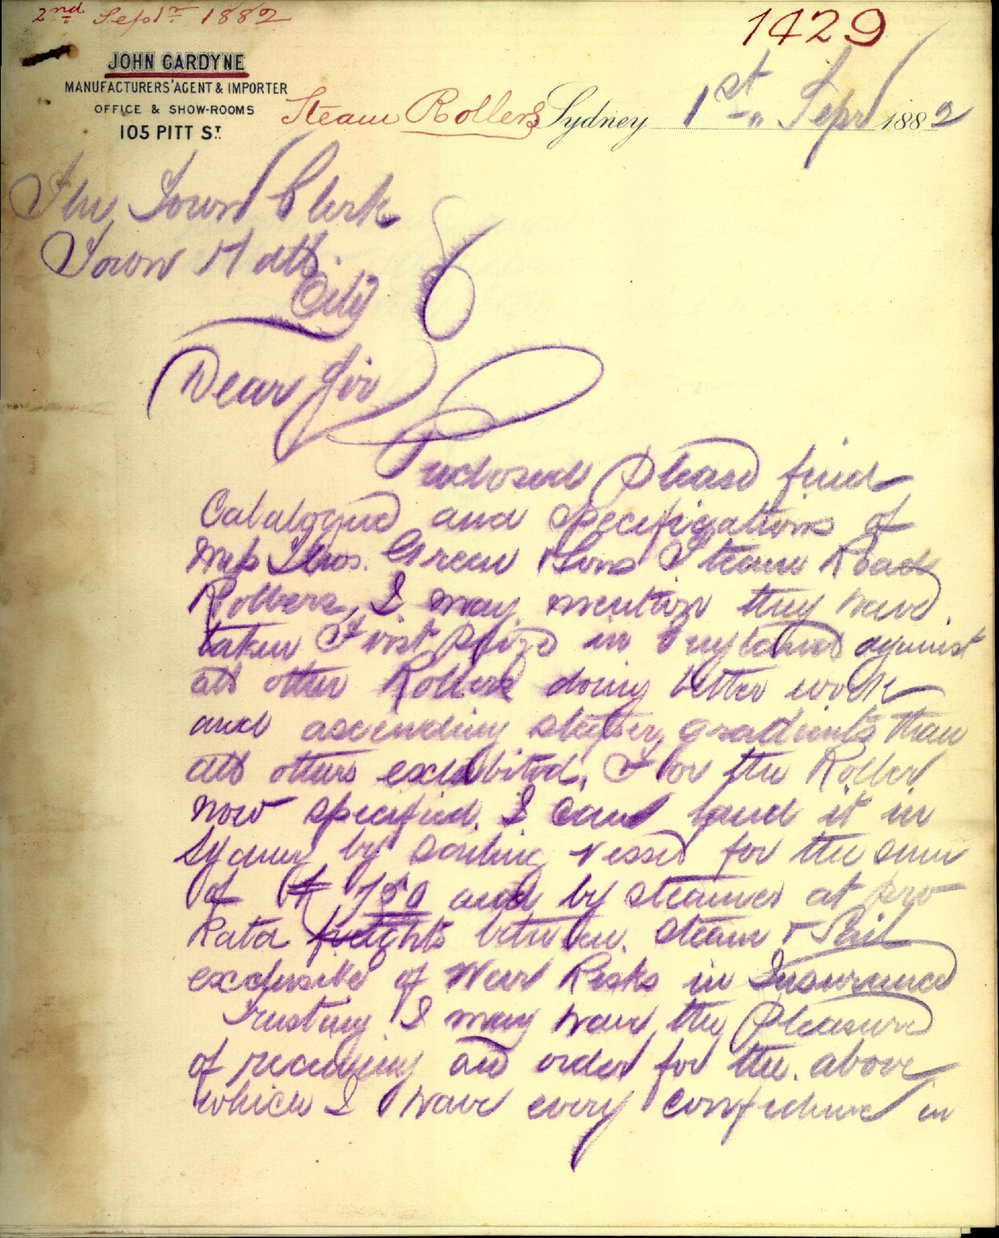 2nd Septr 1882
1429
JOHN GARDYNE
MANUFACTURERS' AGENT & IMPORTER
OFFICE & SHOW-ROOMS
105 PITT ST
Steam Rollers
Sydney 1st Sepr 1882
The Town Clerk
Town Hall
City
Dear Sir
Enclosed please find
Catalogue and specifications of
Mess Thos. Green & Sons Steam Road
Rollers, I may mention they have
taken First prize in England against
all other Rollers doing better work
and ascending steeper gradients than
all others exhibited, For the Roller
now specified, I can land it in
Sydney by sailing vessel for the sum
of £750 and by steamer at pro
Rata freights between Steam & Sail
exclusive of War Risks in Insurance
Trusting I may have the pleasure
of receiving an order for the above
which I have every confidence in